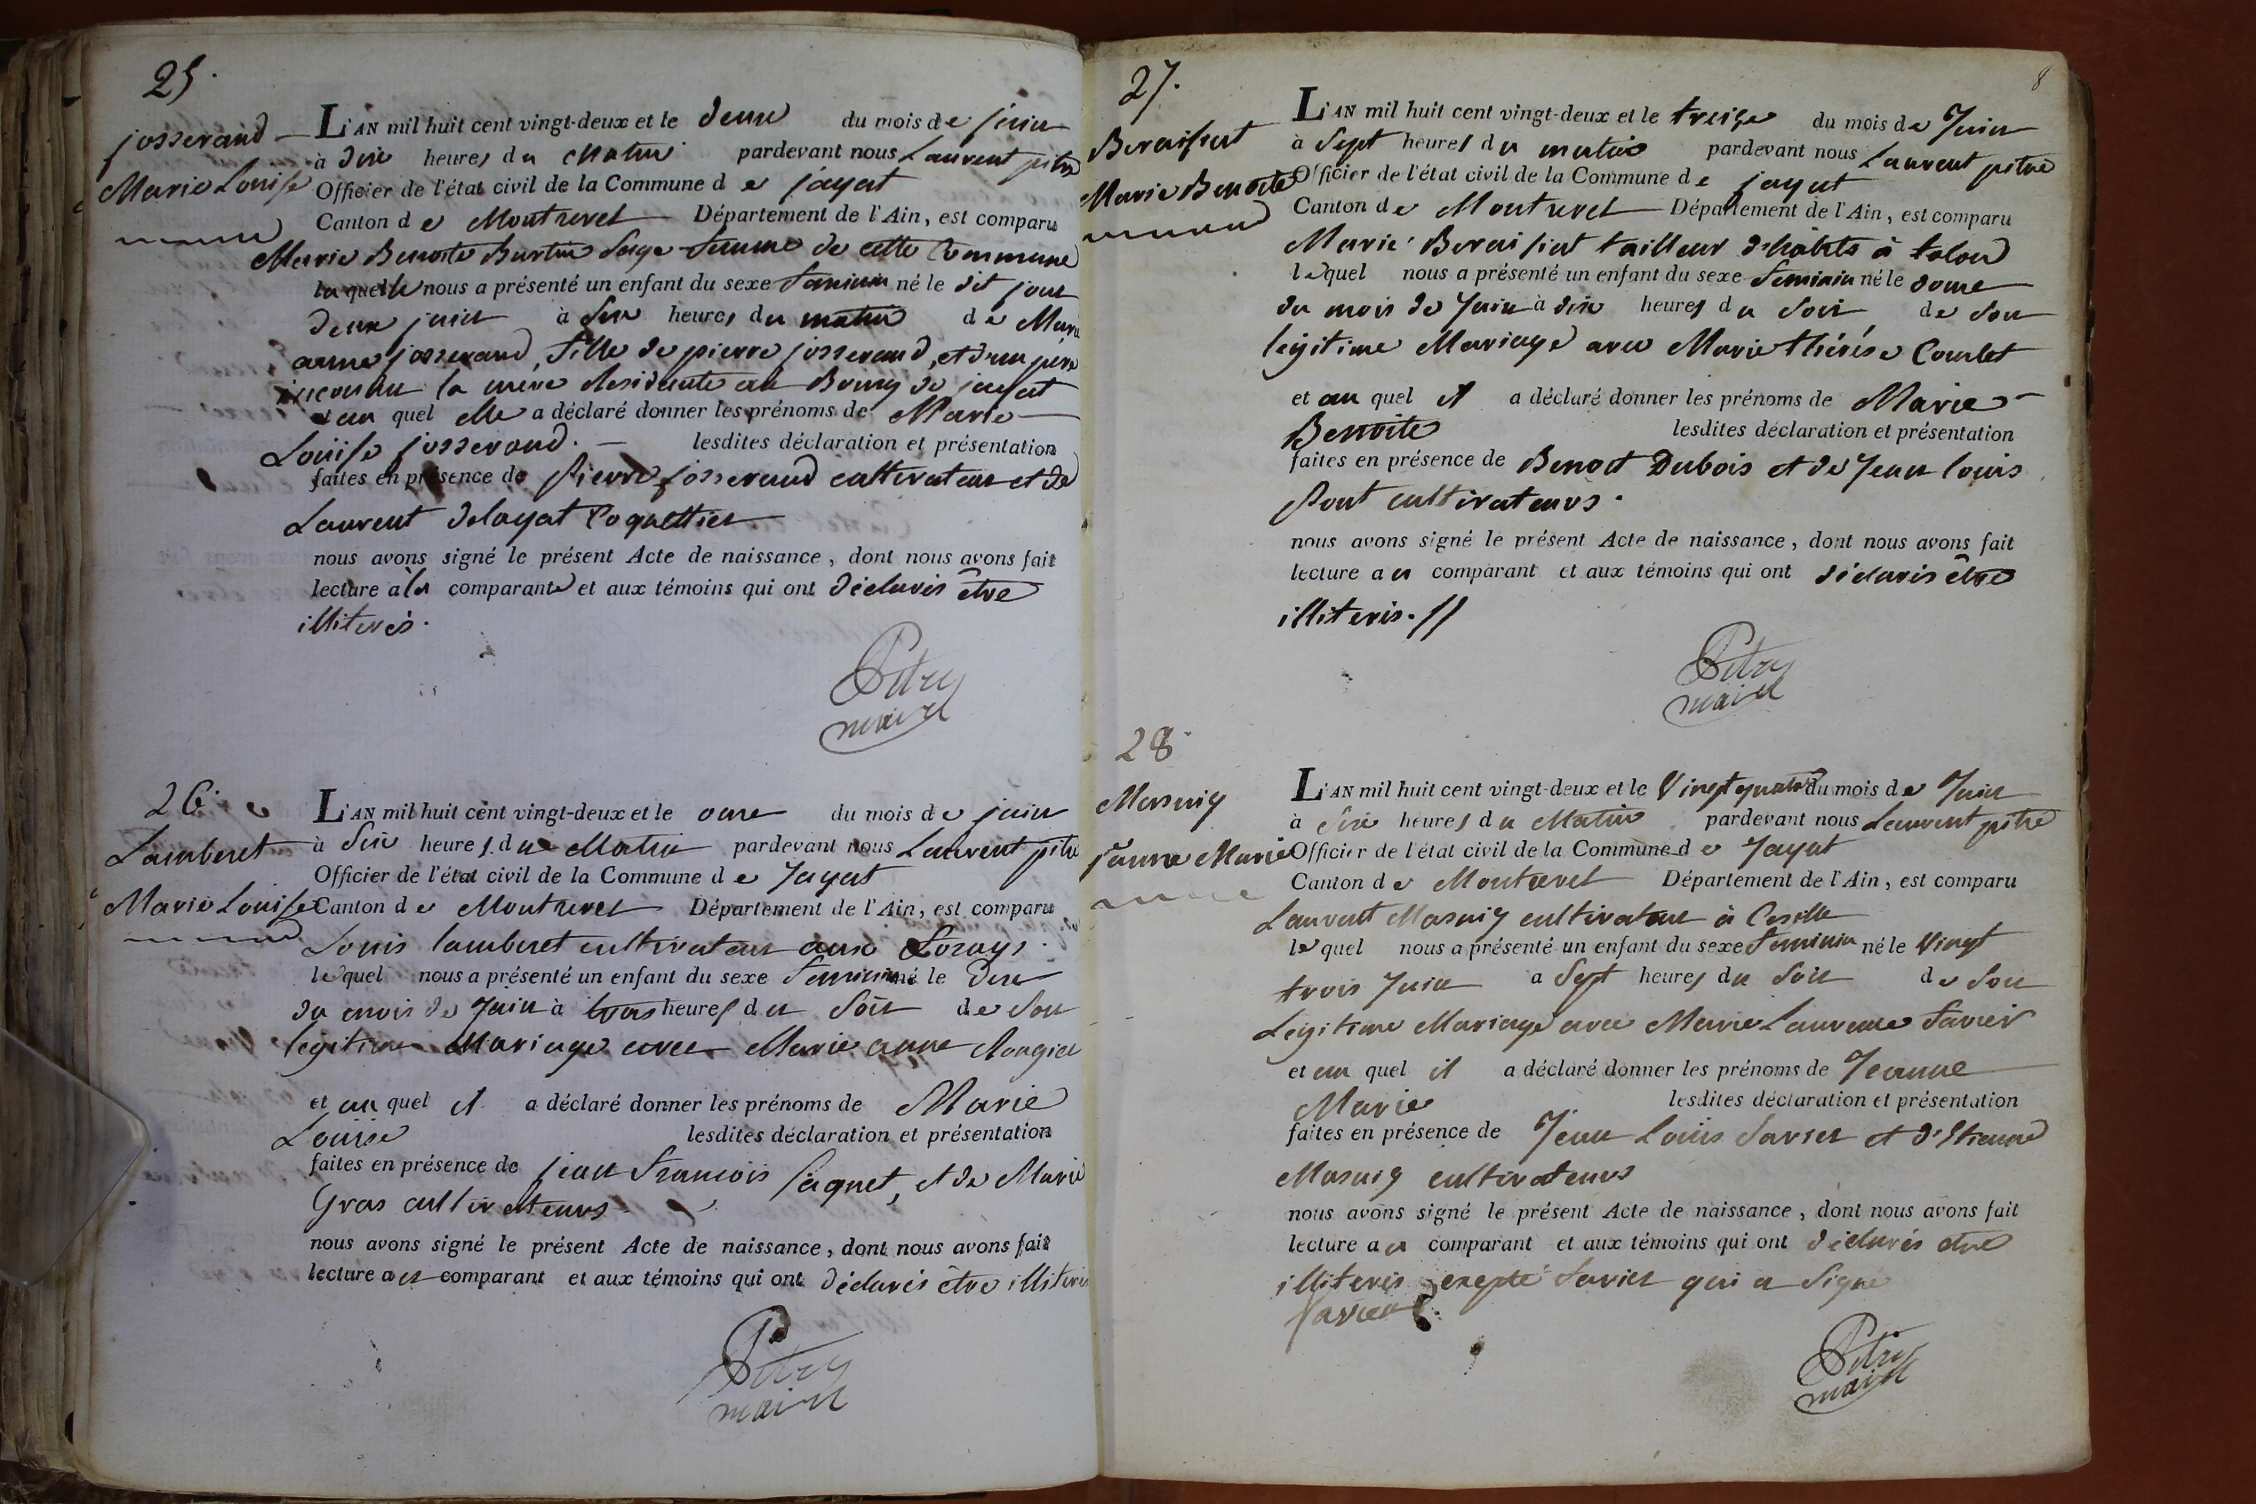 25.
josserand
Marie Louise
L'AN mil huit cent vingt-deux et le deux du mois de juin
à dix heures du Matin pardevant nous Laurent pitre
Officier de l'état civil de la Commune de jayat
Canton de Montrevel Département de l'Ain, est comparu
Marie Benoite Burtin Sage femme de cette Commune
laquelle nous a présenté un enfant du sexe feminin né le dit jour
deux juin à six heures du matin de Marie
anne josserand, fille de pierre josserand, et d'un père
inconnu la mère Residante au Bourg de jayat
et au quel elle a déclaré donner les prénoms de Marie
Louise josserand. lesdites déclaration et présentation
faites en présence de Pierre josserand cultivateur et de
Laurent delayat Coquettier
nous avons signé le présent Acte de naissance, dont nous avons fait
lecture à la comparante et aux témoins qui ont déclarés être
illiterés.
Pitre
maire
26.
Lamberet
Marie Louise
L'AN mil huit cent vingt-deux et le onze du mois de juin
à six heures du Matin pardevant nous Laurent pitre
Officier de l'état civil de la Commune de Jayat
Canton de Montrevel Département de l'Ain, est comparu
Louis lamberet cultivateur aux
lequel nous a présenté un enfant du sexe feminin né le dix
du mois de Juin à trois heures du Soir de Son
légitime Mariage avec Marie anne
et au quel il a déclaré donner les prénoms de Marie
Louise lesdites déclaration et présentation
faites en présence de jean francois paquet, et de Marie
Gras cultivateurs
nous avons signé le présent Acte de naissance, dont nous avons fait
lecture au comparant et aux témoins qui ont déclarés être illiteris
Pitre
maire
27.
Beraisiat
Marie Benoite
8
L'AN mil huit cent vingt-deux et le treize du mois de Juin
à Sept heures du matin pardevant nous Laurent pitre
Officier de l'état civil de la Commune de jayat
Canton de Montrevel Département de l'Ain, est comparu
Marie Beraisiat tailleur d'habits à
lequel nous a présenté un enfant du sexe feminin né le douze
du mois de Juin à dix heures du Soir de Son
légitime Mariage avec Marie thérése
et au quel il a déclaré donner les prénoms de Marie
Benoite lesdites déclaration et présentation
faites en présence de Benoit Dubois et de Jean louis
Pont cultivateurs.
nous avons signé le présent Acte de naissance, dont nous avons fait
lecture au comparant et aux témoins qui ont déclarés être
illiteris.//
Pitre
maire
28
Masuiy
jeanne Marie
L'AN mil huit cent vingt-deux et le Vingt quatre du mois de Juin
à Six heures du Matin pardevant nous Laurent pitre
Officier de l'état civil de la Commune de Jayat
Canton de Montrevel Département de l'Ain, est comparu
Laurent Masuiy cultivateur à Cesille
lequel nous a présenté un enfant du sexe feminin né le Vingt
trois Juin à Sept heures du Soir de Son
Légitime Mariage avec Marie Laurence favier
et au quel il a déclaré donner les prénoms de Jeanne
Marie lesdites déclaration et présentation
faites en présence de Jean Louis favier et d'Etienne
Masuiy cultivateurs
nous avons signé le présent Acte de naissance, dont nous avons fait
lecture au comparant et aux témoins qui ont déclarés être
illiteris exepté favier qui a Signé
favier
Pitre
maire